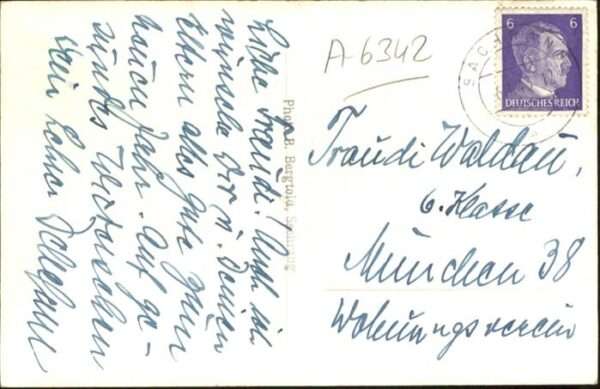 Liebe Traudi! Auch ich
wünsche Dir u. Deinen
Eltern alles Gute zum
neuen Jahr. Auf ge-
sundes Wiedersehen
Dein Lehrer
Phot. B. Bergtold,
A-6342
SACH
6 6
DEUTSCHES REICH
Traudi Waldau,
6. Klasse
München 38
Wohnungsverein